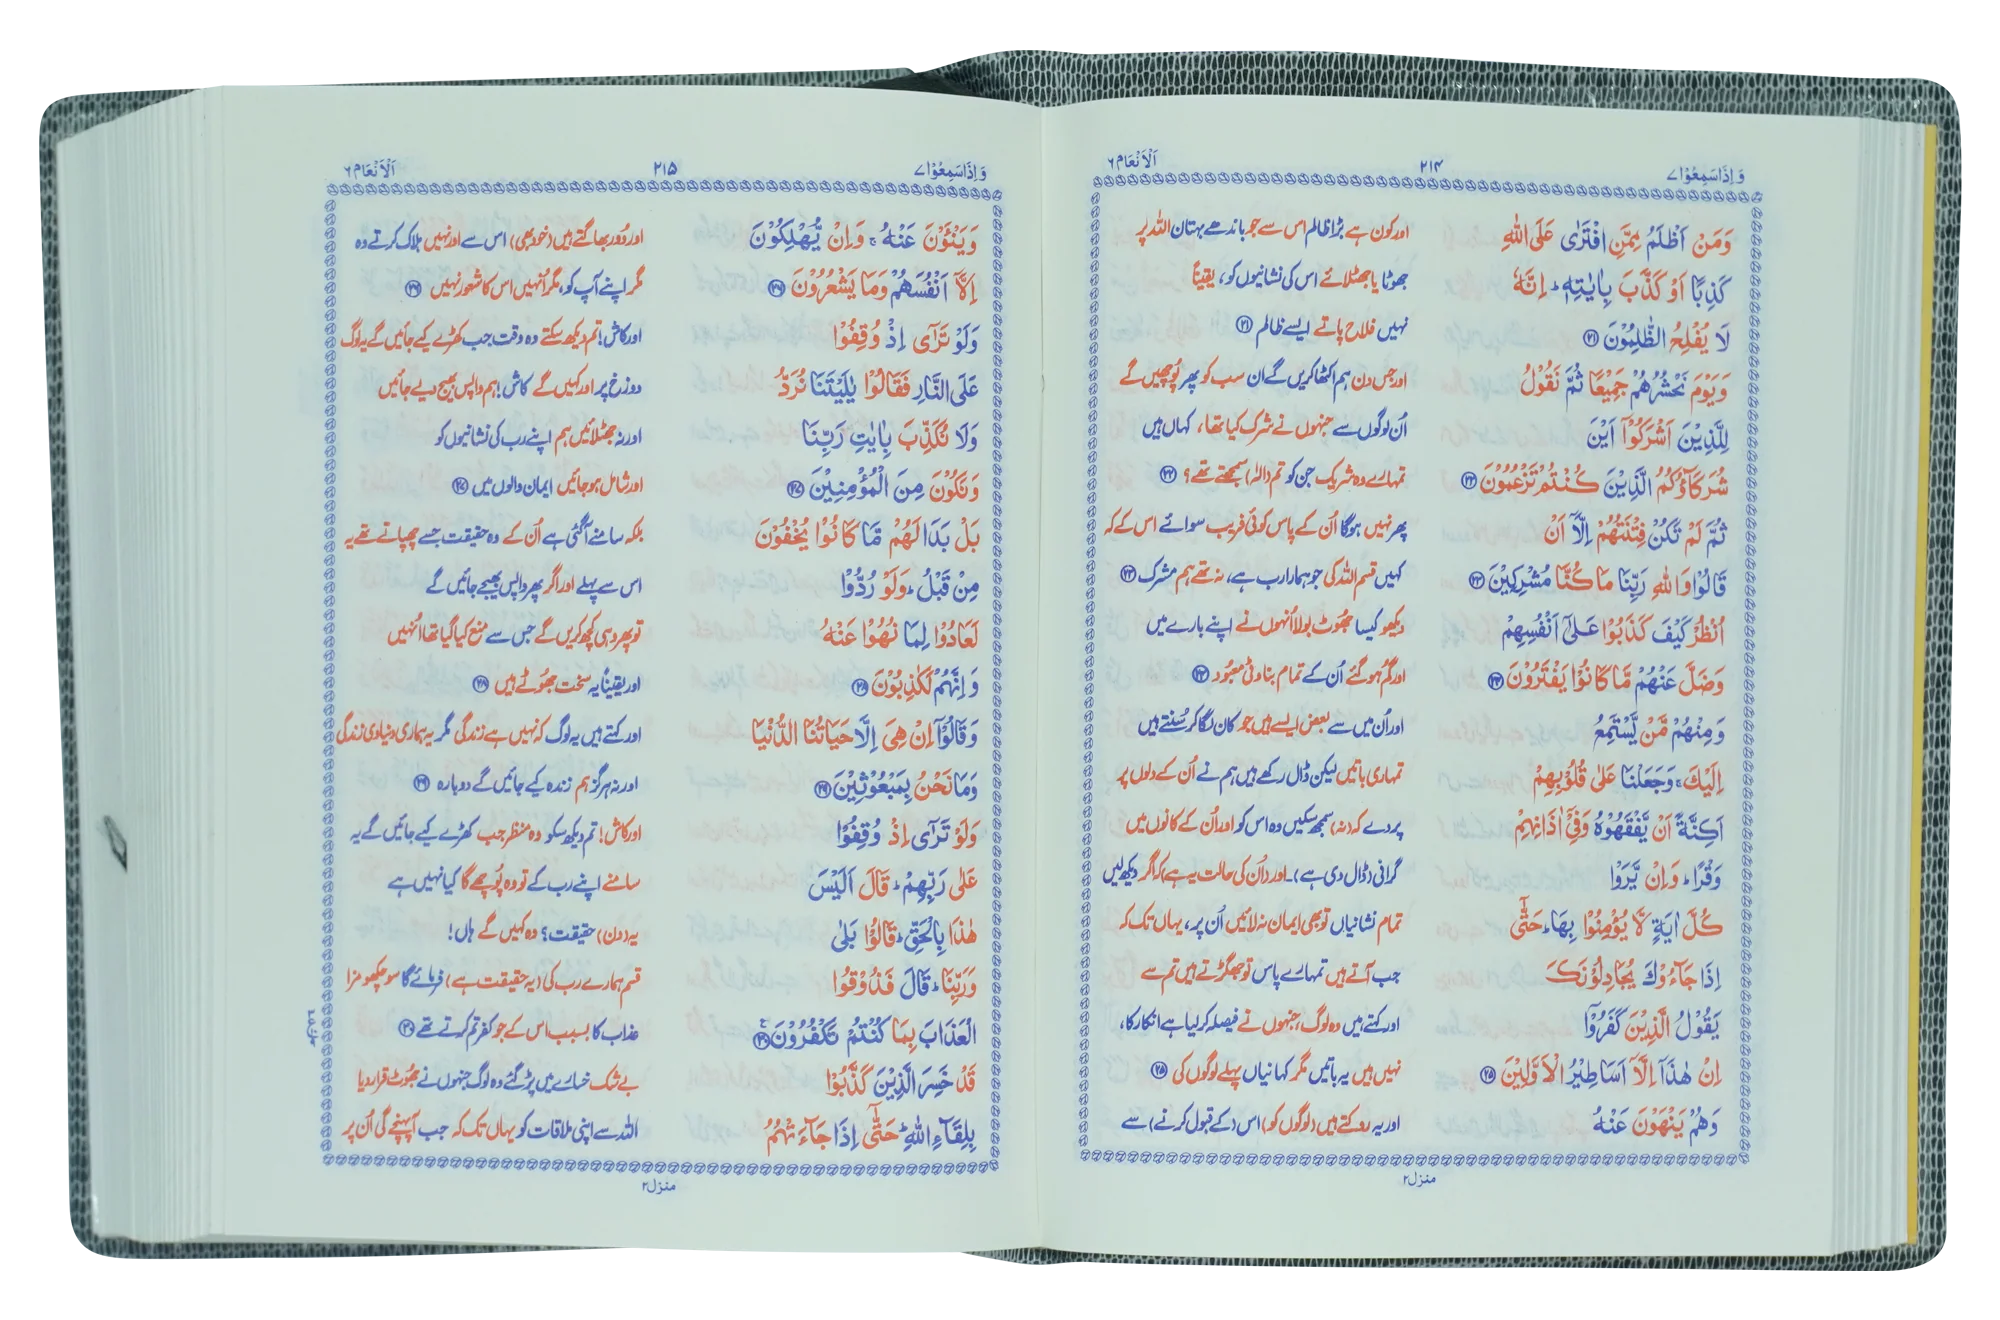 وَاِذَا سَمِعُوْا ٧ ٢١٤ اَلْاَنْعَام ٦
وَمَنْ اَظْلَمُ مِمَّنِ افْتَرٰى عَلَى اللّٰهِ اور کون ہے بڑا ظالم اس سے جو باندھے بہتان اللہ پر
كَذِبًا اَوْ كَذَّبَ بِاٰيٰتِهٖ ؕ اِنَّهٗ جھوٹا یا جھٹلائے اس کی نشانیوں کو، یقیناً
لَا يُفْلِحُ الظّٰلِمُوْنَ ﴿٢١﴾ نہیں فلاح پاتے ایسے ظالم ﴿٢١﴾
وَيَوْمَ نَحْشُرُهُمْ جَمِيْعًا ثُمَّ نَقُوْلُ اور جس دن ہم اکٹھا کریں گے ان سب کو پھر پُوچھیں گے
لِلَّذِيْنَ اَشْرَكُوْٓا اَيْنَ اُن لوگوں سے جنہوں نے شرک کیا تھا، کہاں ہیں
شُرَكَآؤُكُمُ الَّذِيْنَ كُنْتُمْ تَزْعُمُوْنَ ﴿٢٢﴾ تمہارے وہ شریک جن کو تم (الٰہ) سمجھتے تھے؟ ﴿٢٢﴾
ثُمَّ لَمْ تَكُنْ فِتْنَتُهُمْ اِلَّآ اَنْ پھر نہیں ہوگا اُن کے پاس کوئی فریب سوائے اس کے کہ
قَالُوْا وَاللّٰهِ رَبِّنَا مَا كُنَّا مُشْرِكِيْنَ ﴿٢٣﴾ کہیں قسم اللہ کی جو ہمارا رب ہے، نہ تھے ہم مشرک ﴿٢٣﴾
اُنْظُرْ كَيْفَ كَذَبُوْا عَلٰٓى اَنْفُسِهِمْ دیکھو کیسا جھوٹ بولا اُنہوں نے اپنے بارے میں
وَضَلَّ عَنْهُمْ مَّا كَانُوْا يَفْتَرُوْنَ ﴿٢٤﴾ اور گم ہو گئے اُن کے تمام بناوٹی معبُود ﴿٢٤﴾
وَمِنْهُمْ مَّنْ يَّسْتَمِعُ اور اُن میں سے بعض ایسے ہیں جو کان لگا کر سُنتے ہیں
اِلَيْكَ ۚ وَجَعَلْنَا عَلٰى قُلُوْبِهِمْ تمہاری باتیں لیکن ڈال رکھے ہیں ہم نے اُن کے دلوں پر
اَكِنَّةً اَنْ يَّفْقَهُوْهُ وَفِيْٓ اٰذَانِهِمْ پردے کہ (نہ) سمجھ سکیں وہ اس کو اور اُن کے کانوں میں
وَقْرًا ؕ وَاِنْ يَّرَوْا گرانی (ڈال دی ہے)۔ اور (اُن کی حالت یہ ہے) کہ اگر دیکھ لیں
كُلَّ اٰيَةٍ لَّا يُؤْمِنُوْا بِهَا ؕ حَتّٰٓى تمام نشانیاں تو بھی ایمان نہ لائیں اُن پر، یہاں تک کہ
اِذَا جَآءُوْكَ يُجَادِلُوْنَكَ جب آتے ہیں تمہارے پاس تو جھگڑتے ہیں تم سے
يَقُوْلُ الَّذِيْنَ كَفَرُوْٓا اور کہتے ہیں وہ لوگ، جنہوں نے فیصلہ کر لیا ہے انکار کا،
اِنْ هٰذَآ اِلَّآ اَسَاطِيْرُ الْاَوَّلِيْنَ ﴿٢٥﴾ نہیں ہیں یہ باتیں مگر کہانیاں پہلے لوگوں کی ﴿٢٥﴾
وَهُمْ يَنْهَوْنَ عَنْهُ اور یہ روکتے ہیں (لوگوں کو) اس (کے قبول کرنے) سے
منزل ٢
وَاِذَا سَمِعُوْا ٧ ٢١٥ اَلْاَنْعَام ٦
وَيَنْـَٔوْنَ عَنْهُ ۚ وَاِنْ يُّهْلِكُوْنَ اور دُور بھاگتے ہیں (خود بھی) اس سے اور نہیں ہلاک کرتے وہ
اِلَّآ اَنْفُسَهُمْ وَمَا يَشْعُرُوْنَ ﴿٢٦﴾ مگر اپنے آپ کو، مگر اُنہیں اس کا شعور نہیں ﴿٢٦﴾
وَلَوْ تَرٰٓى اِذْ وُقِفُوْا اور کاش! تم دیکھ سکتے وہ وقت جب کھڑے کیے جائیں گے یہ لوگ
عَلَى النَّارِ فَقَالُوْا يٰلَيْتَنَا نُرَدُّ دوزخ پر اور کہیں گے کاش! ہم واپس بھیج دیے جائیں
وَلَا نُكَذِّبَ بِاٰيٰتِ رَبِّنَا اور نہ جھٹلائیں ہم اپنے رب کی نشانیوں کو
وَنَكُوْنَ مِنَ الْمُؤْمِنِيْنَ ﴿٢٧﴾ اور شامل ہو جائیں ایمان والوں میں ﴿٢٧﴾
بَلْ بَدَا لَهُمْ مَّا كَانُوْا يُخْفُوْنَ بلکہ سامنے آگئی ہے اُن کے وہ حقیقت جسے چھپاتے تھے یہ
مِنْ قَبْلُ ؕ وَلَوْ رُدُّوْا اس سے پہلے اور اگر پھر واپس بھیجے جائیں گے
لَعَادُوْا لِمَا نُهُوْا عَنْهُ تو پھر وہی کچھ کریں گے جس سے منع کیا گیا تھا اُنہیں
وَاِنَّهُمْ لَكٰذِبُوْنَ ﴿٢٨﴾ اور یقیناً یہ سخت جھوٹے ہیں ﴿٢٨﴾
وَقَالُوْٓا اِنْ هِيَ اِلَّا حَيَاتُنَا الدُّنْيَا اور کہتے ہیں یہ لوگ کہ نہیں ہے زندگی مگر یہ ہماری دنیاوی زندگی
وَمَا نَحْنُ بِمَبْعُوْثِيْنَ ﴿٢٩﴾ اور نہ ہرگز ہم زندہ کیے جائیں گے دوبارہ ﴿٢٩﴾
وَلَوْ تَرٰٓى اِذْ وُقِفُوْا اور کاش! تم دیکھ سکو وہ منظر جب کھڑے کیے جائیں گے یہ
عَلٰى رَبِّهِمْ ؕ قَالَ اَلَيْسَ سامنے اپنے رب کے تو وہ پُوچھے گا کیا نہیں ہے
هٰذَا بِالْحَقِّ ؕ قَالُوْا بَلٰى یہ (دن) حقیقت؟ وہ کہیں گے ہاں!
وَرَبِّنَا ؕ قَالَ فَذُوْقُوا قسم ہمارے رب کی (یہ حقیقت ہے) فرمائے گا سو چکھو مزا
الْعَذَابَ بِمَا كُنْتُمْ تَكْفُرُوْنَ ﴿٣٠﴾ عذاب کا بسبب اس کے جو کفر تم کرتے تھے ﴿٣٠﴾
قَدْ خَسِرَ الَّذِيْنَ كَذَّبُوْا بے شک خسارے میں پڑ گئے وہ لوگ جنہوں نے جھوٹ قرار دیا
بِلِقَآءِ اللّٰهِ ؕ حَتّٰٓى اِذَا جَآءَتْهُمُ اللہ سے اپنی ملاقات کو یہاں تک کہ جب آپہنچے گی اُن پر
منزل ٢